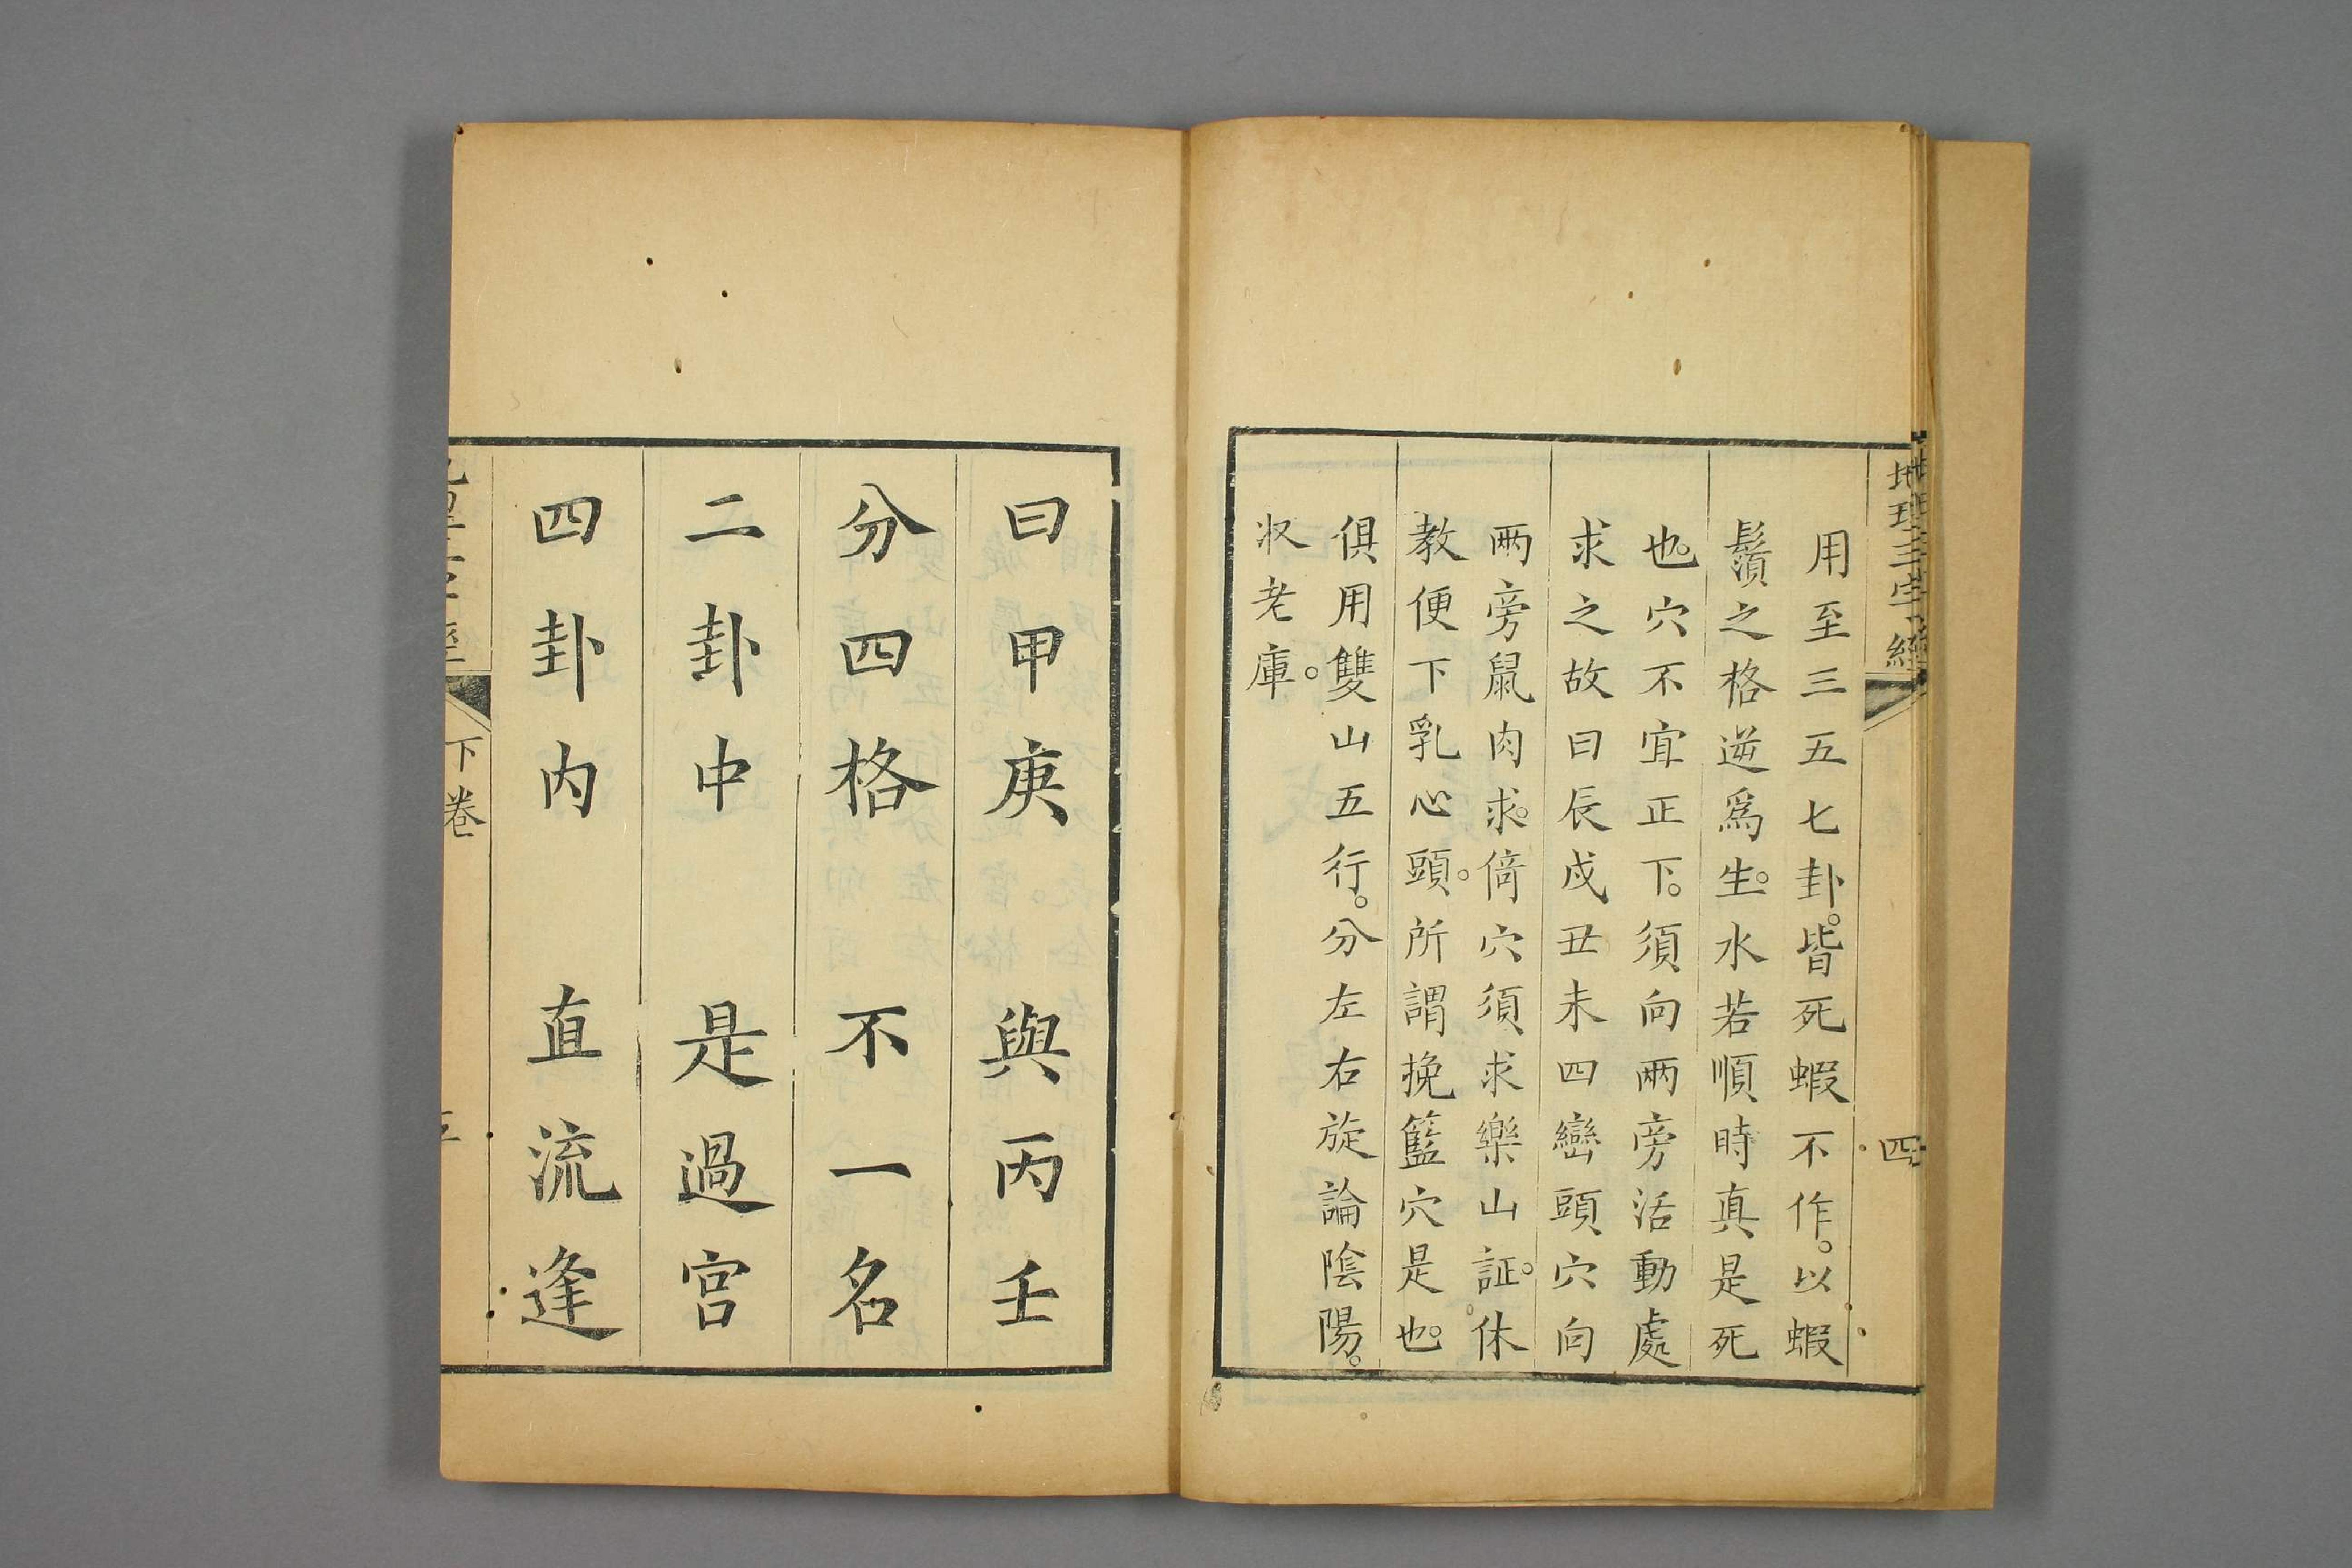 地理三字經
四
用至三五七卦。皆死蝦不作。以蝦
鬚之格逆爲生。水若順時真是死
也。穴不宜正下。須向兩旁活動處
求之故曰辰戌丑未四巒頭穴向
兩旁鼠肉求。倚穴須求樂山証。休
教便下乳心頭。所謂挽籃穴是也。
俱用雙山五行。分左右旋論陰陽。
收老庫。
曰甲庚 與丙壬
分四格 不一名
二卦中 是過宮
四卦内 直流逢
下卷